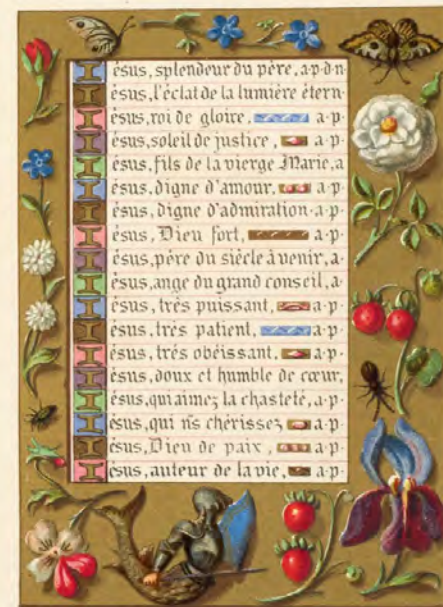 Iésus, splendeur du père, a·p·d·n·
Iésus, l'éclat de la lumière étern·
Iésus, roi de gloire, a·p·
Iésus, soleil de justice, a·p·
Iésus, fils de la vierge Marie, a
Iésus, digne d'amour, a·p·
Iésus, digne d'admiration· a·p·
Iésus, Dieu fort, a·p·
Iésus, père du siècle à venir, a·
Iésus, ange du grand conseil, a·
Iésus, très puissant, a·p·
Iésus, très patient, a·p·
Iésus, très obéissant, a·p·
Iésus, doux et humble de cœur,
Iésus, qui aimez la chasteté, a·p·
Iésus, qui ns chérissez a·p·
Iésus, Dieu de paix, a·p·
Iésus, auteur de la vie, a·p·